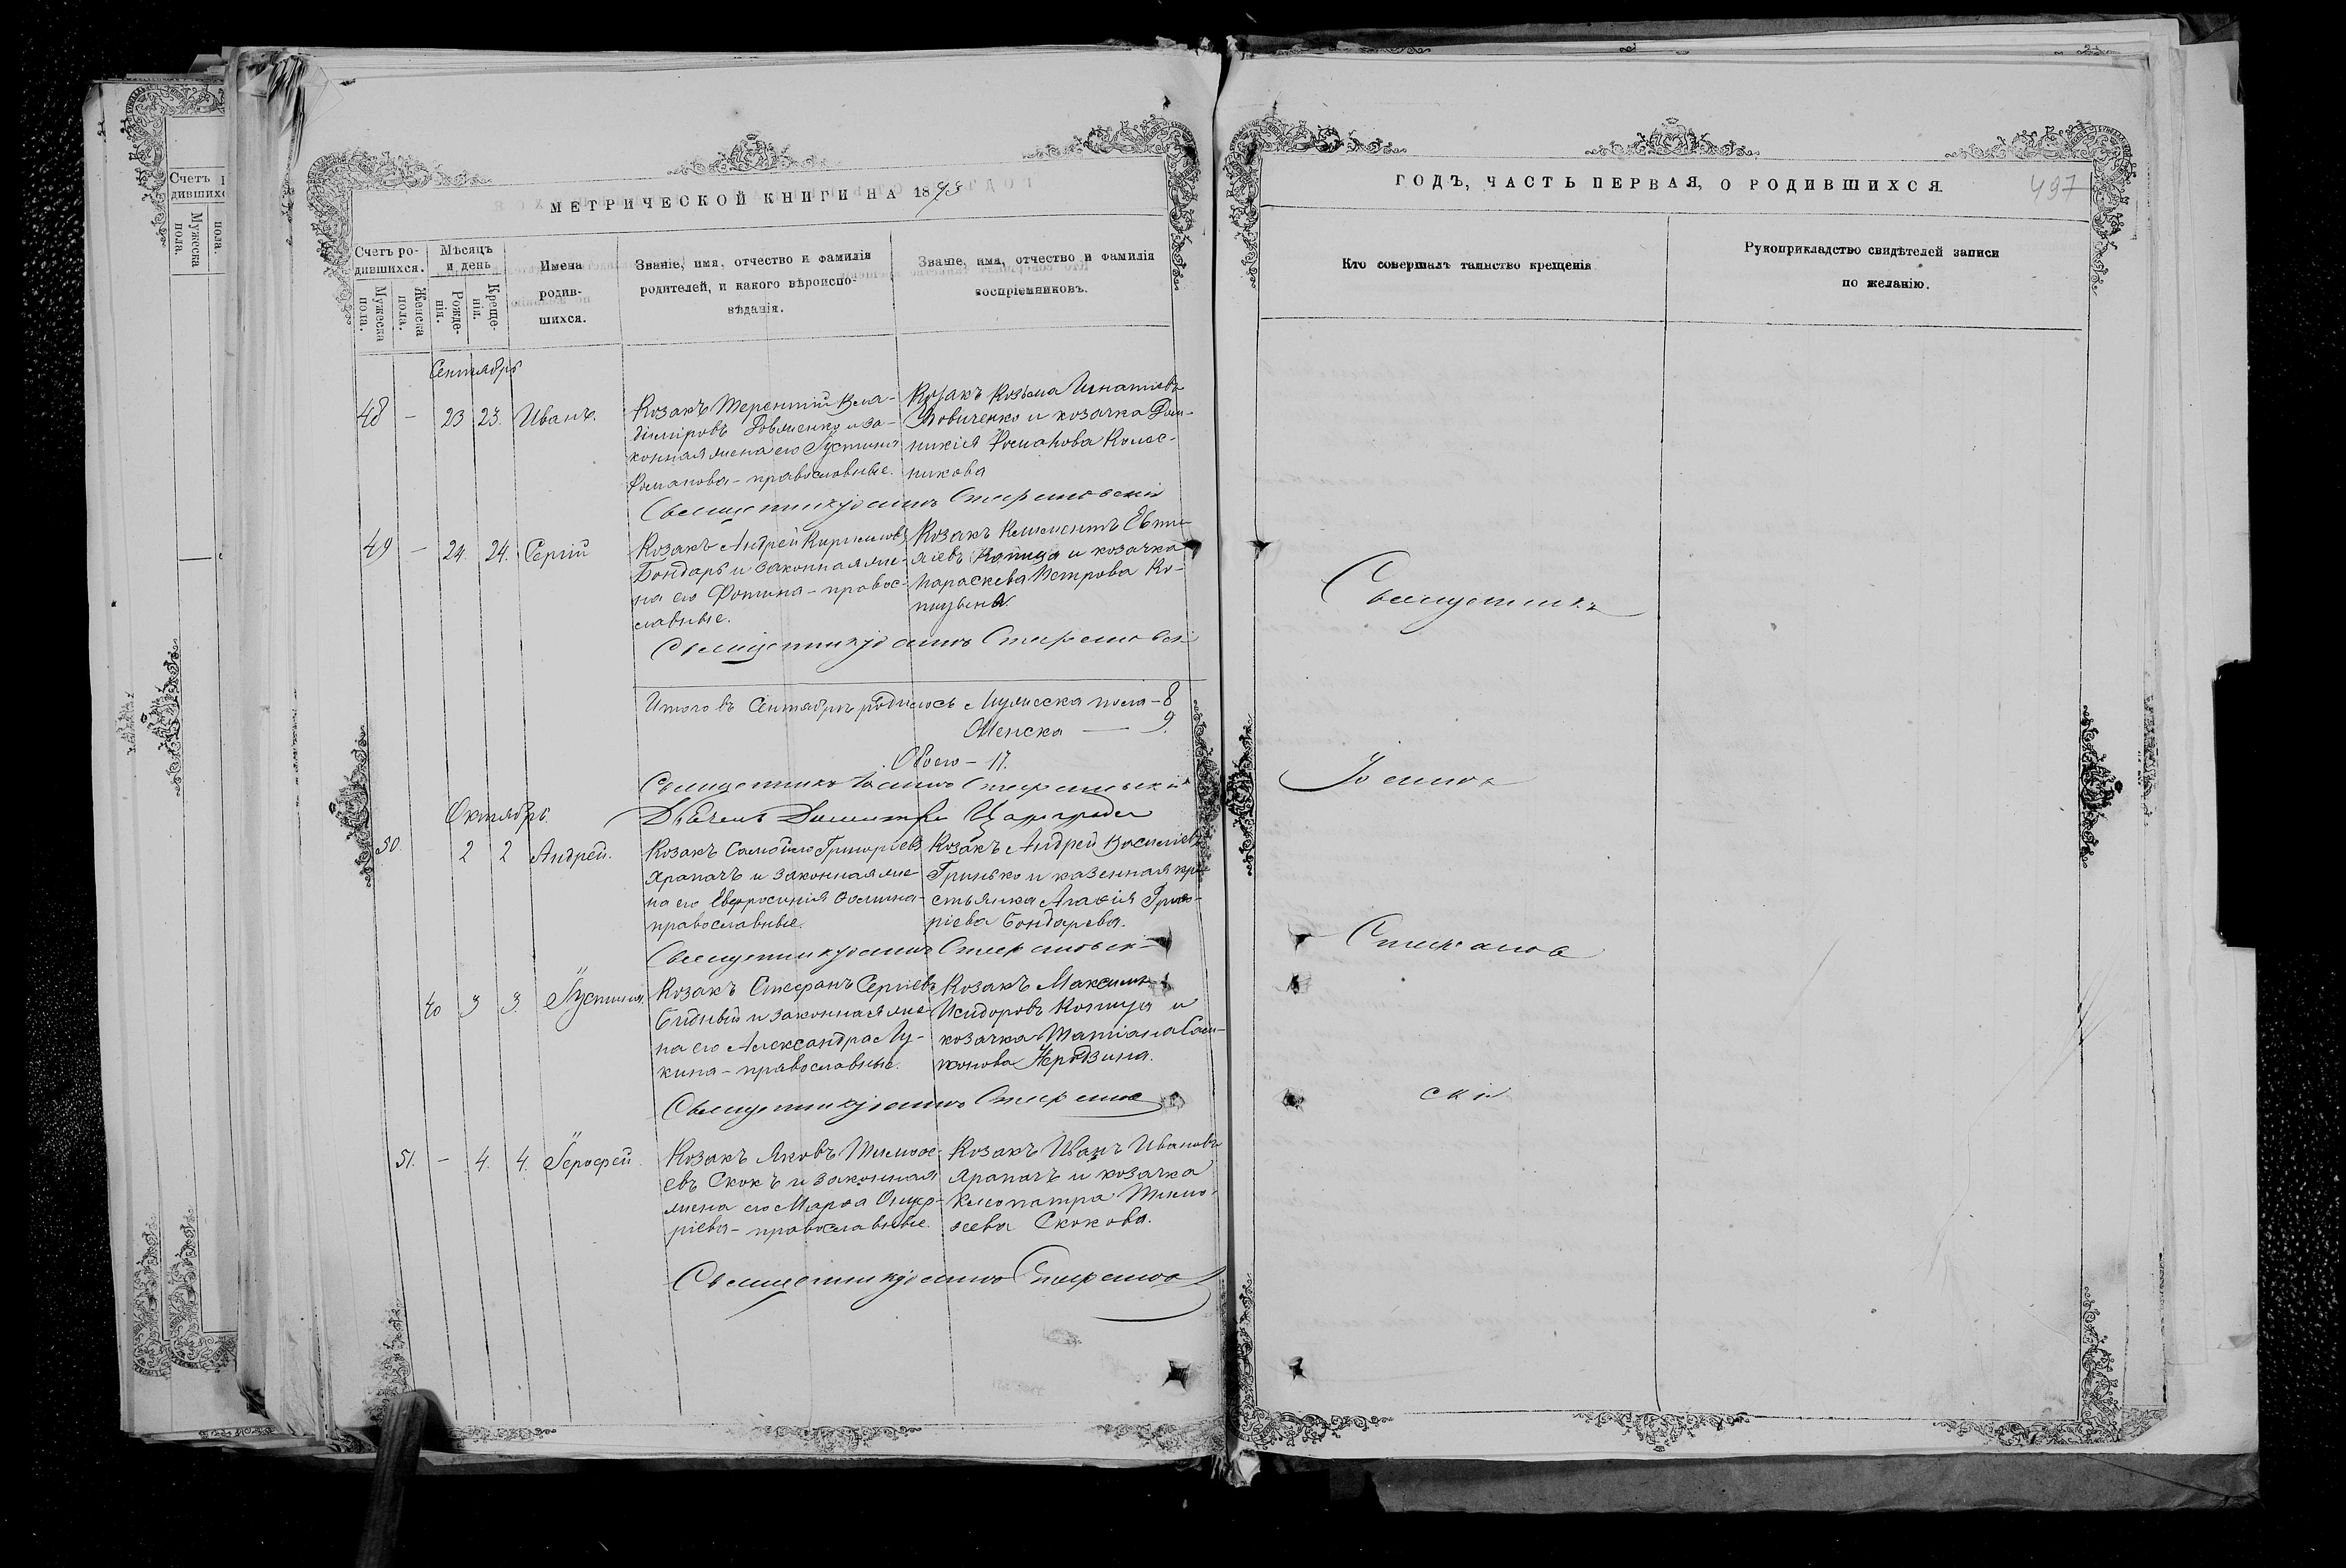 МЕТРИЧЕСКОЙ КНИГИ НА 1893
Счетъ ро-
дившихся.
Мужеска
пола.
Женска
пола.
Мѣсяцъ
и день
Рожде-
нія.
Креще-
нія.
Имена
родив-
шихся.
Званіе, имя, отчество и фамилія
родителей, и какого вѣроиспо-
вѣданія.
Званіе, имя, отчество и фамилія
воспріемниковъ.
Сентябрь
48 – 23 23. Иванъ.
Козакъ Терентій Вла-
диміровъ и за-
конная жена его Іустина
Романова – православные.
Козакъ Козьма Игнатіевъ
Вовченко и козачка Дом-
никія Романова Колес-
никова
Священникъ Іоаннъ Стефановскій
49 – 24. 24. Сергій
Козакъ Андрей Кирилловъ
Бондарь и законная же-
на его Фотина – правос-
лавные.
Козакъ Климентъ Евти-
хіевъ Копица и козачка
Параскева Петрова Ко-
пицына.
Священникъ Іоаннъ Стефановскій
Итого въ Сентябрѣ родилось Мужеска пола – 8
Женска — 9.
Обоего – 17.
Священникъ Іоаннъ Стефановскій
Октябрь.
Дьячекъ Димитрій
50 2 2 Андрей.
Козакъ Самойло Григоріевъ
Арапачъ и законная же-
на его Евфросинія Фомина –
православные.
Козакъ Андрей Василіевъ
Гринько и казенная кре-
стьянка Агафія Григо-
ріева Бондарева.
Священникъ Іоаннъ Стефановск
40 3 3. Іустина.
Козакъ Стефанъ Сергіевъ
Бидный и законная же-
на его Александра Лу-
кина – православные.
Козакъ Максимъ
Исидоровъ Копица и
козачка Татіана Сам-
сонова
Священникъ Іоаннъ Стефанов
51. – 4. 4. Іерофей.
Козакъ Яковъ Тимофе-
евъ Скокъ и законная
жена его Марфа Онуф-
ріева – православные.
Козакъ Иванъ Ивановъ
Арапачъ и козачка
Клеопатра Тимо-
феева Скокова.
Священникъ Іоаннъ Стефанов
ГОДЪ, ЧАСТЬ ПЕРВАЯ, О РОДИВШИХСЯ.
497
Кто совершалъ таинство крещенія
Рукоприкладство свидѣтелей записи
по желанію.
Священникъ
Іоаннъ
Стефанов
скій
Счетъ
дившихс
Мужеска
пола.
пола.